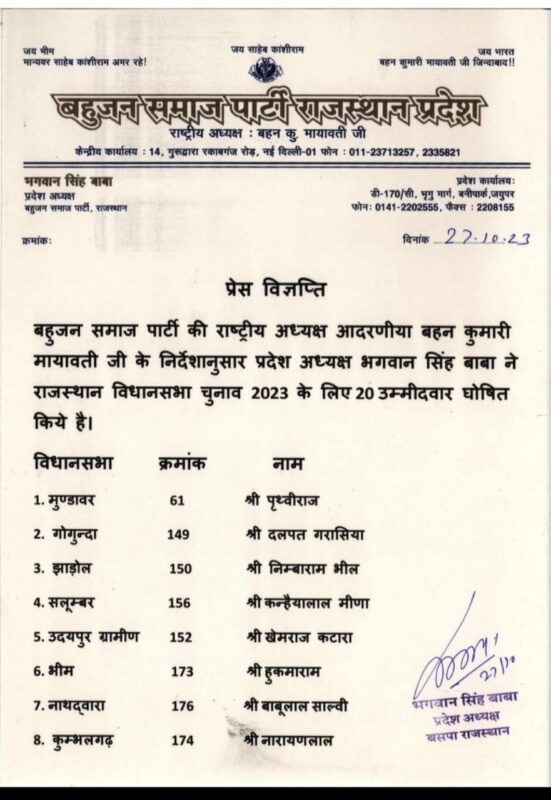 जय भीम
मान्यवर साहेब कांशीराम अमर रहे!
जय साहेब कांशीराम
जय भारत
बहन कुमारी मायावती जी जिन्दाबाद!!
बहुजन समाज पार्टी राजस्थान प्रदेश
राष्ट्रीय अध्यक्ष : बहन कु. मायावती जी
केन्द्रीय कार्यालय : 14, गुरूद्वारा रकाबगंज रोड़, नई दिल्ली-01 फोन : 011-23713257, 2335821
भगवान सिंह बाबा
प्रदेश अध्यक्ष
बहुजन समाज पार्टी, राजस्थान
प्रदेश कार्यालय:
डी-170/सी, भृगु मार्ग, बनीपार्क,जयपुर
फोन: 0141-2202555, फैक्स : 2208155
क्रमांक:
दिनांक 27.10.23
प्रेस विज्ञप्ति
बहुजन समाज पार्टी की राष्ट्रीय अध्यक्ष आदरणीया बहन कुमारी
मायावती जी के निर्देशानुसार प्रदेश अध्यक्ष भगवान सिंह बाबा ने
राजस्थान विधानसभा चुनाव 2023 के लिए 20 उम्मीदवार घोषित
किये है।
विधानसभा क्रमांक नाम
1. मुण्डावर 61 श्री पृथ्वीराज
2. गोगुन्दा 149 श्री दलपत गरासिया
3. झाड़ोल 150 श्री निम्बाराम भील
4. सलूम्बर 156 श्री कन्हैयालाल मीणा
5. उदयपुर ग्रामीण 152 श्री खेमराज कटारा
6. भीम 173 श्री हुकमाराम
7. नाथद्वारा 176 श्री बाबूलाल साल्वी
8. कुम्भलगढ़ 174 श्री नारायणलाल
27/10
भगवान सिंह बाबा
प्रदेश अध्यक्ष
बसपा राजस्थान